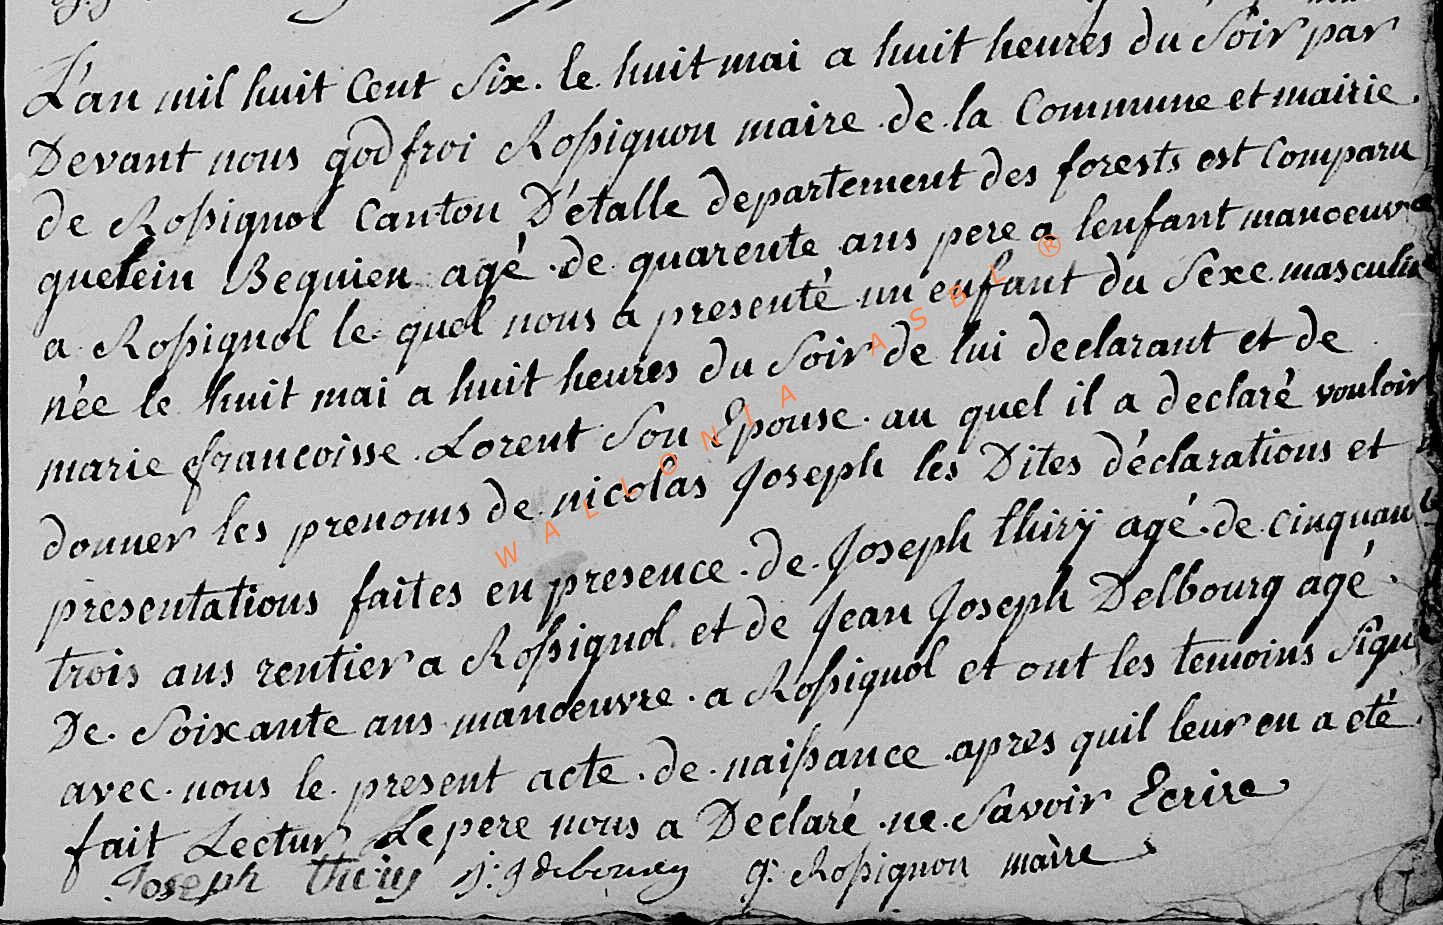 L'an mil huit Cent Six. le huit mai a huit heures du Soir par
Devant nous godfroi Rossignon maire de la Commune et mairie
de Rossignol Canton D'étalle departement des forests est Comparu
guelein Bequien agé de quarente ans pere a lenfant manoeuvre
a Rossignol le quel nous a presenté un enfant du Sexe masculin
née le huit mai a huit heures du Soir de lui declarant et de
marie francoisse Lorent Son Epouse au quel il a declaré vouloir
donner les prenoms de nicolas Joseph les Dites déclarations et
presentations faites en presence de Joseph thirÿ agé de cinquante
trois ans rentier a Rossignol et de Jean Joseph Delbourg agé
De Soixante ans manoeuvre a Rossignol et ont les temoins Signé
avec nous le present acte de naissance apres quil leur en a eté
fait Lectur Le pere nous a Déclaré ne Savoir Ecrire
Joseph thiry j: j debourg g: Rossignon maire
WALLONIA ASBL ®